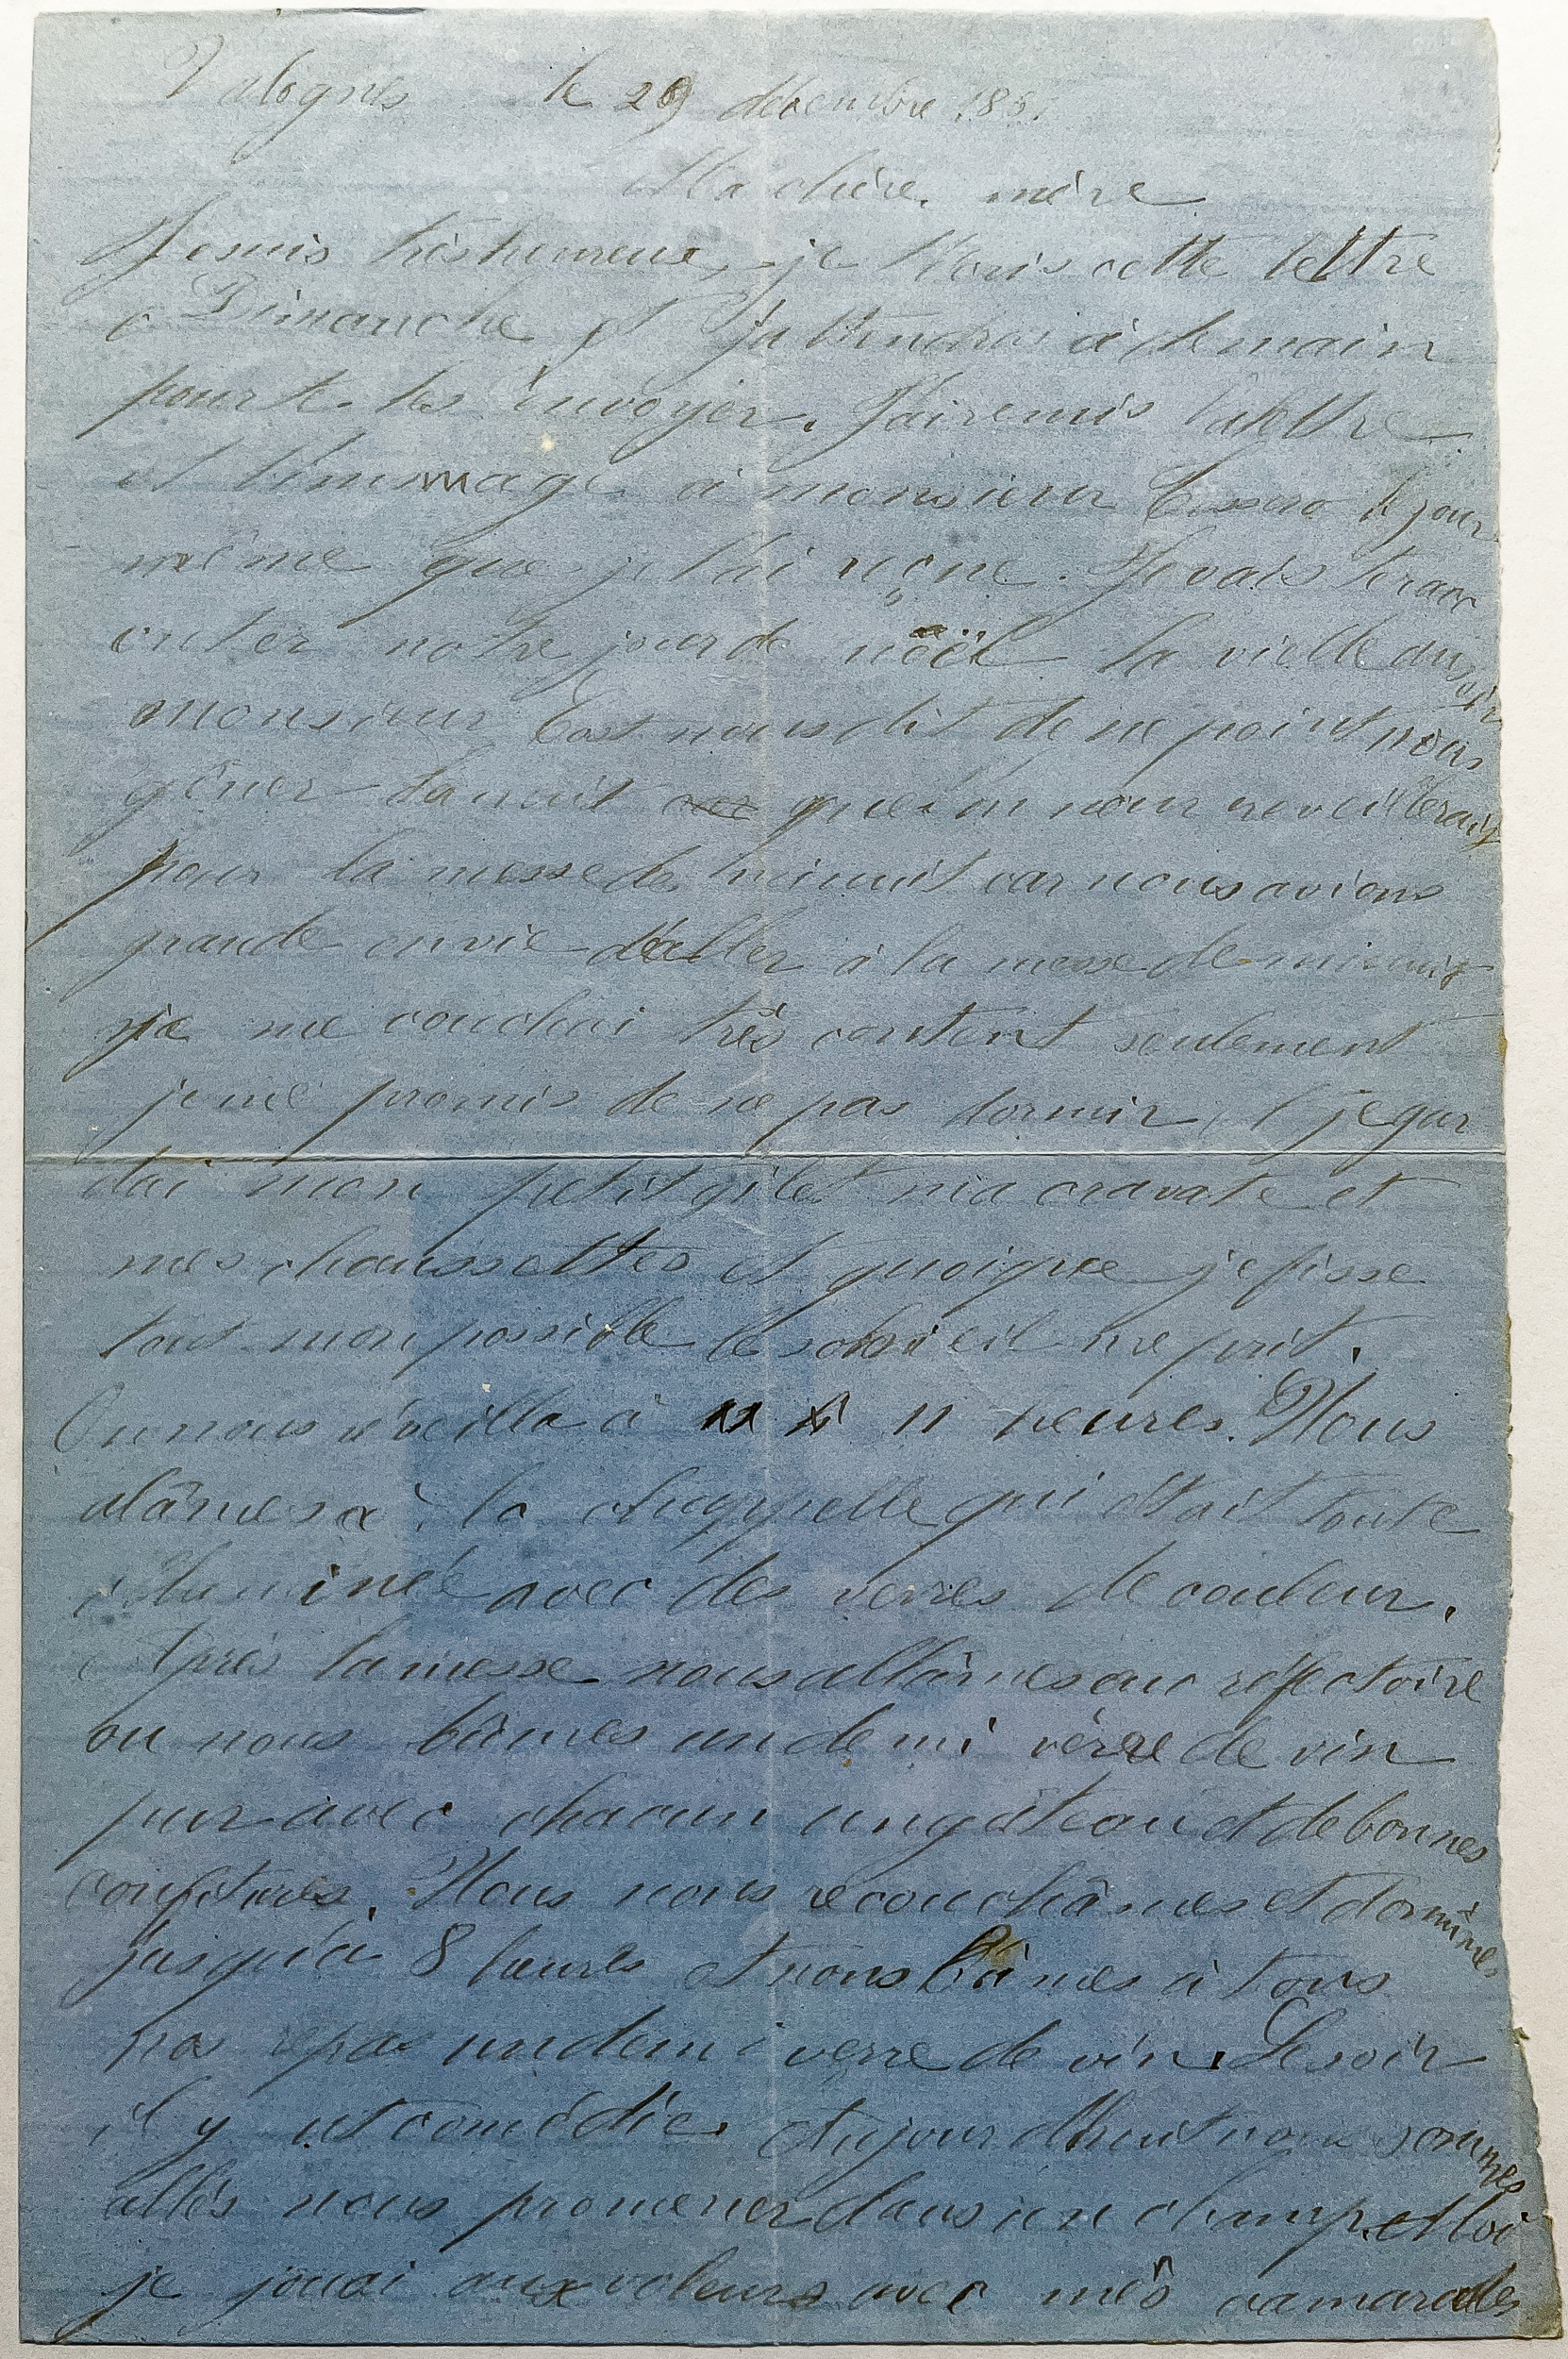 Valognes le 29 décembre 185
Ma chère mère
Je suis très heureux, je t'écris cette lettre
Dimanche et j'attendrai à demain
pour te les envoyer. J'ai remis la lettre
et l'immage à monsieur le jour
même que je l'ai reçue. Je vais te rac
onter notre jour de nöel la vielle au soir
monsieur nous dit de ne point nous
gêner la nuit que l'on nous reveillerait
pour la messe de minuit car nous avions
grande envie d'aller à la messe de minuit
je me couchai très content seulement
je me promis de ne pas dormir, je gar
dai mon petit gilet ma cravate et
mes chaussettes et quoique je fisse
tout mon possible le sommeil me prit.
On nous éveilla à 11 heures. Nous
alâmes à la chappelle qui était toute
illuminée avec des verres de couleur.
Après la messe nous allâmes au réfectoire
ou nous bûmes un demi vèrre de vin
pur avec chacun un gâteau et de bonnes
confitures. Nous nous recouchâmes et dormîmes
jusqu'à 8 heures et nous bûmes à tous
nos repas un demi verre de vin. Le soir
il y ut comédie. Aujourd'huit nous sommes
allés nous promener dans un champ et là
je jouai aux voleurs avec mês camarades